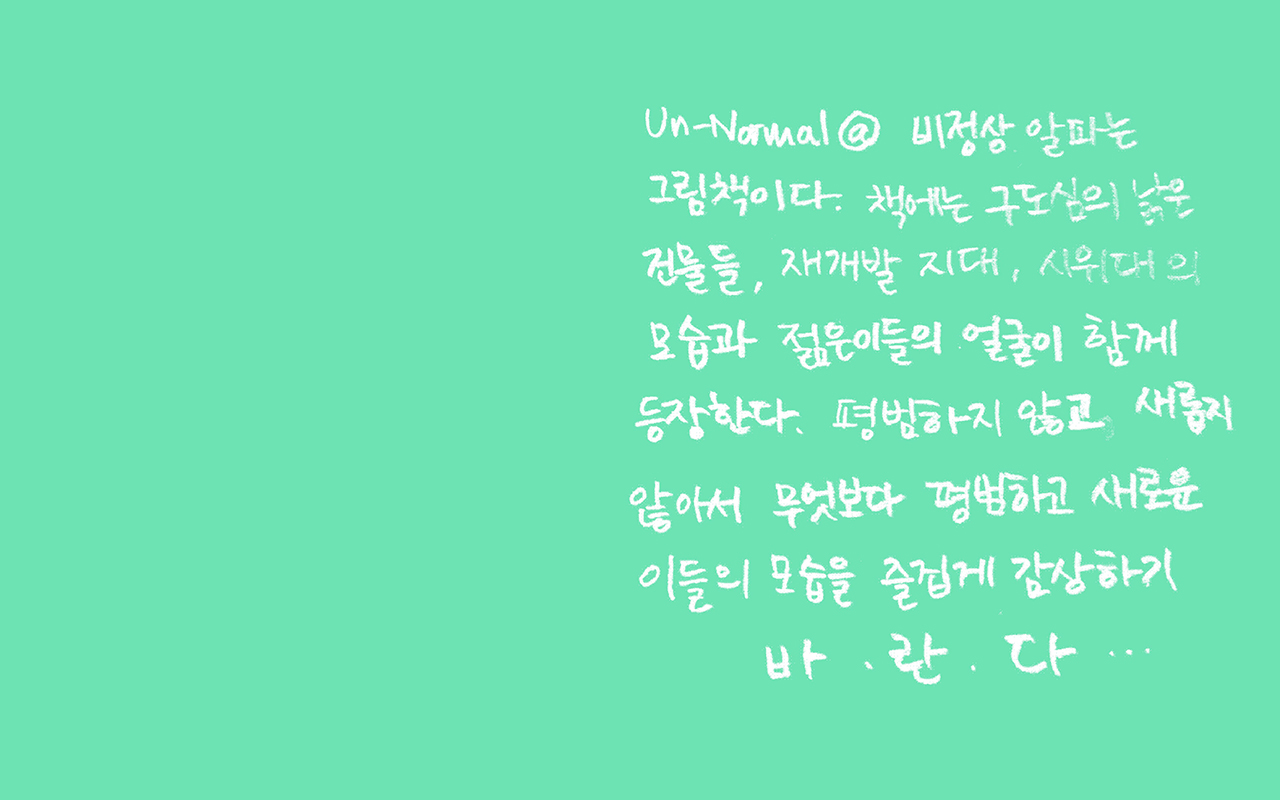 Un-Normal@ 비정상 알파는
그림책이다. 책에는 구도심의 낡은
건물들, 재개발 지대, 시위대의
모습과 젊은이들의 얼굴이 함께
등장한다. 평범하지 않고, 새롭지
않아서 무엇보다 평범하고 새로운
이들의 모습을 즐겁게 감상하기
바.란.다...